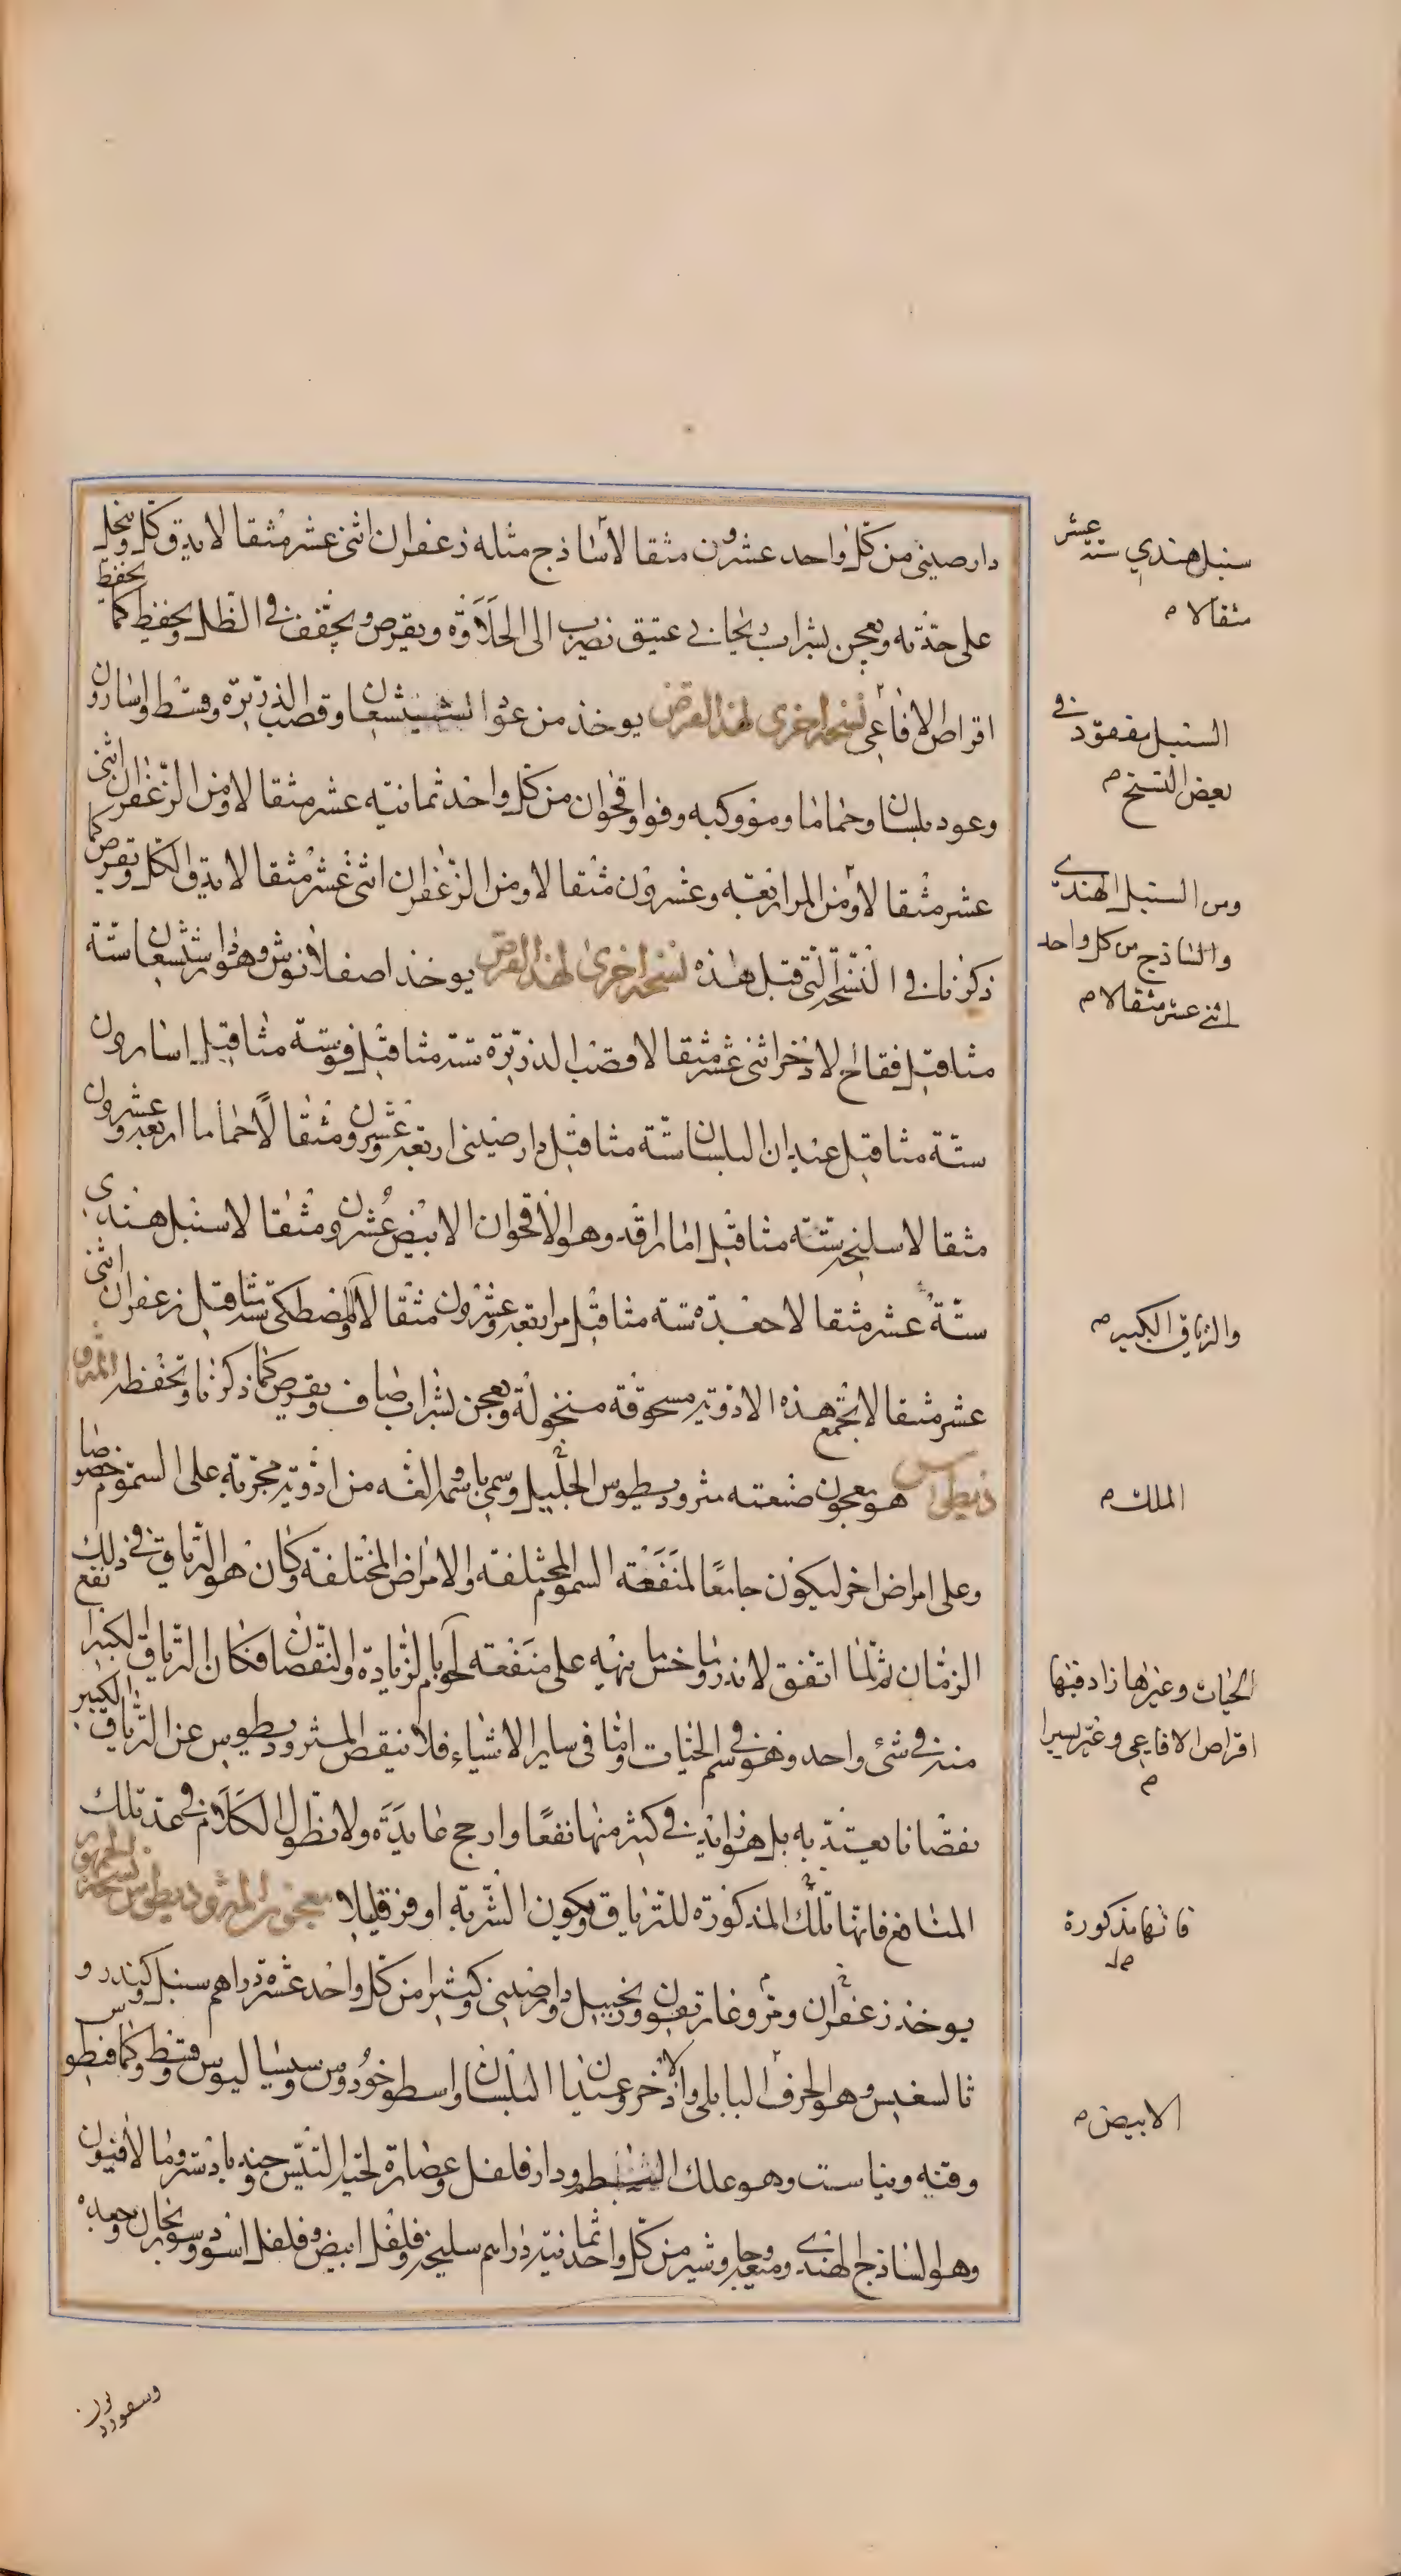 دارصيني من كل واحد عشرون مثقالا ساذج مثله زعفران اثنى عشر مثقالا يدق كل وينخل
على حدته ويعجن بشراب ريحاني عتيق يضرب الى الحلاوة ويقرص ويجفف في الظل ويحفظ كما يحفظ
اقراص الافاعي نسخة اخرى لهذا القرص يوخذ من عود وقصب الذريرة وقسط واسارون
وعود بلسان وحماما ومو وكبه وفو واقحوان من كل واحد ثمانية عشر مثقالا ومن الزعفران اثنى
عشر مثقالا ومن المر اربعة وعشرون مثقالا ومن الزعفران اثنى عشر مثقالا يدق الكل ويقرص كما
ذكرنا في النسخة التي قبل هذه نسخة اخرى لهذا القرص يوخذ وهو دارشيشعان ستة
مثاقيل فقاح الاذخر اثنى عشر مثقالا قصب الذريرة ستة مثاقيل فو ستة مثاقيل اسارون
ستة مثاقيل عيدان البلسان ستة مثاقيل دارصيني اربعة وعشرون مثقالا حماما اربعة وعشرون
مثقالا سليخة ستة مثاقيل وهو الاقحوان الابيض عشرون مثقالا سنبل هندي
ستة عشر مثقالا جعدة ستة مثاقيل مر اربعة وعشرون مثقالا والمصطكى ستة مثاقيل زعفران اثنى
عشر مثقالا تجمع هذه الادوية مسحوقة منخولة ويعجن بشراب صاف ويقرص كما ذكرنا وتحفظ المثرو
ديطوس هو معجون صنعته مثروديطوس الجليل وسمي باسمه الفه من ادوية مجربة على السموم خصوصا
وعلى امراض اخر ليكون جامعا لمنفعة السموم المختلفة والامراض المختلفة وكان هو الترياق في ذلك
الزمان ثم لما اتفق لاندروماخس ما تنبه على منفعة لحوم بالزيادة والنقصان فكان الترياق الكبير انفع
منه في شئ واحد وهو في سم الحيات واما في ساير الاشياء فلا ينقص المثروديطوس عن الترياق الكبير
نقصانا يعتد به بل هو زايد في كثير منها نفعا وارجح عايدة ولا نطول الكلام في عد تلك
المنافع فانها تلك المذكورة للترياق ويكون الشربة اوفر قليلا معجون المثروديطوس نسخة الجمهور
يوخذ زعفران ومر وغاريقون وزنجبيل ودارصيني وكثيرا من كل واحد عشرة دراهم سنبل وكندر و
ثالسفيس وهو الحرف البابلي والاذخر وعيدان البلسان واسطوخودوس وسيساليوس وقسط وكمافيطوس
وقنه ونياست وهو علك البطم ودارفلفل وعصارة لحية التيس وجندبادستر ومالافيون
وهو الساذج الهندي وميعه وجاوشير من كل واحد ثمانية دراهم سليخة وفلفل ابيض وفلفل اسود وسورنجان وجعدة
سنبل هندي ستة عشر
مثقالا م
السنبل مفقود في
بعض النسخ م
ومن السنبل الهندي
والساذج من كل واحد
اثنى عشر مثقالا م
والترياق الكبير م
الملك م
الحيات وغيرها زاد فيها
اقراص الافاعي وغير يسيرا
م
فانها مذكورة
الابيض م